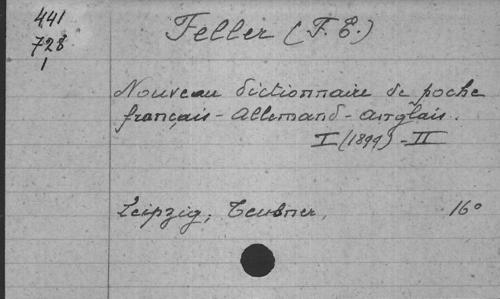 441
728
1
Feller (F. E.)
Nouveau dictionnaire de poche
français - Allemand - Anglais.
I (1899) - II
Leipzig, Teubner, 16°